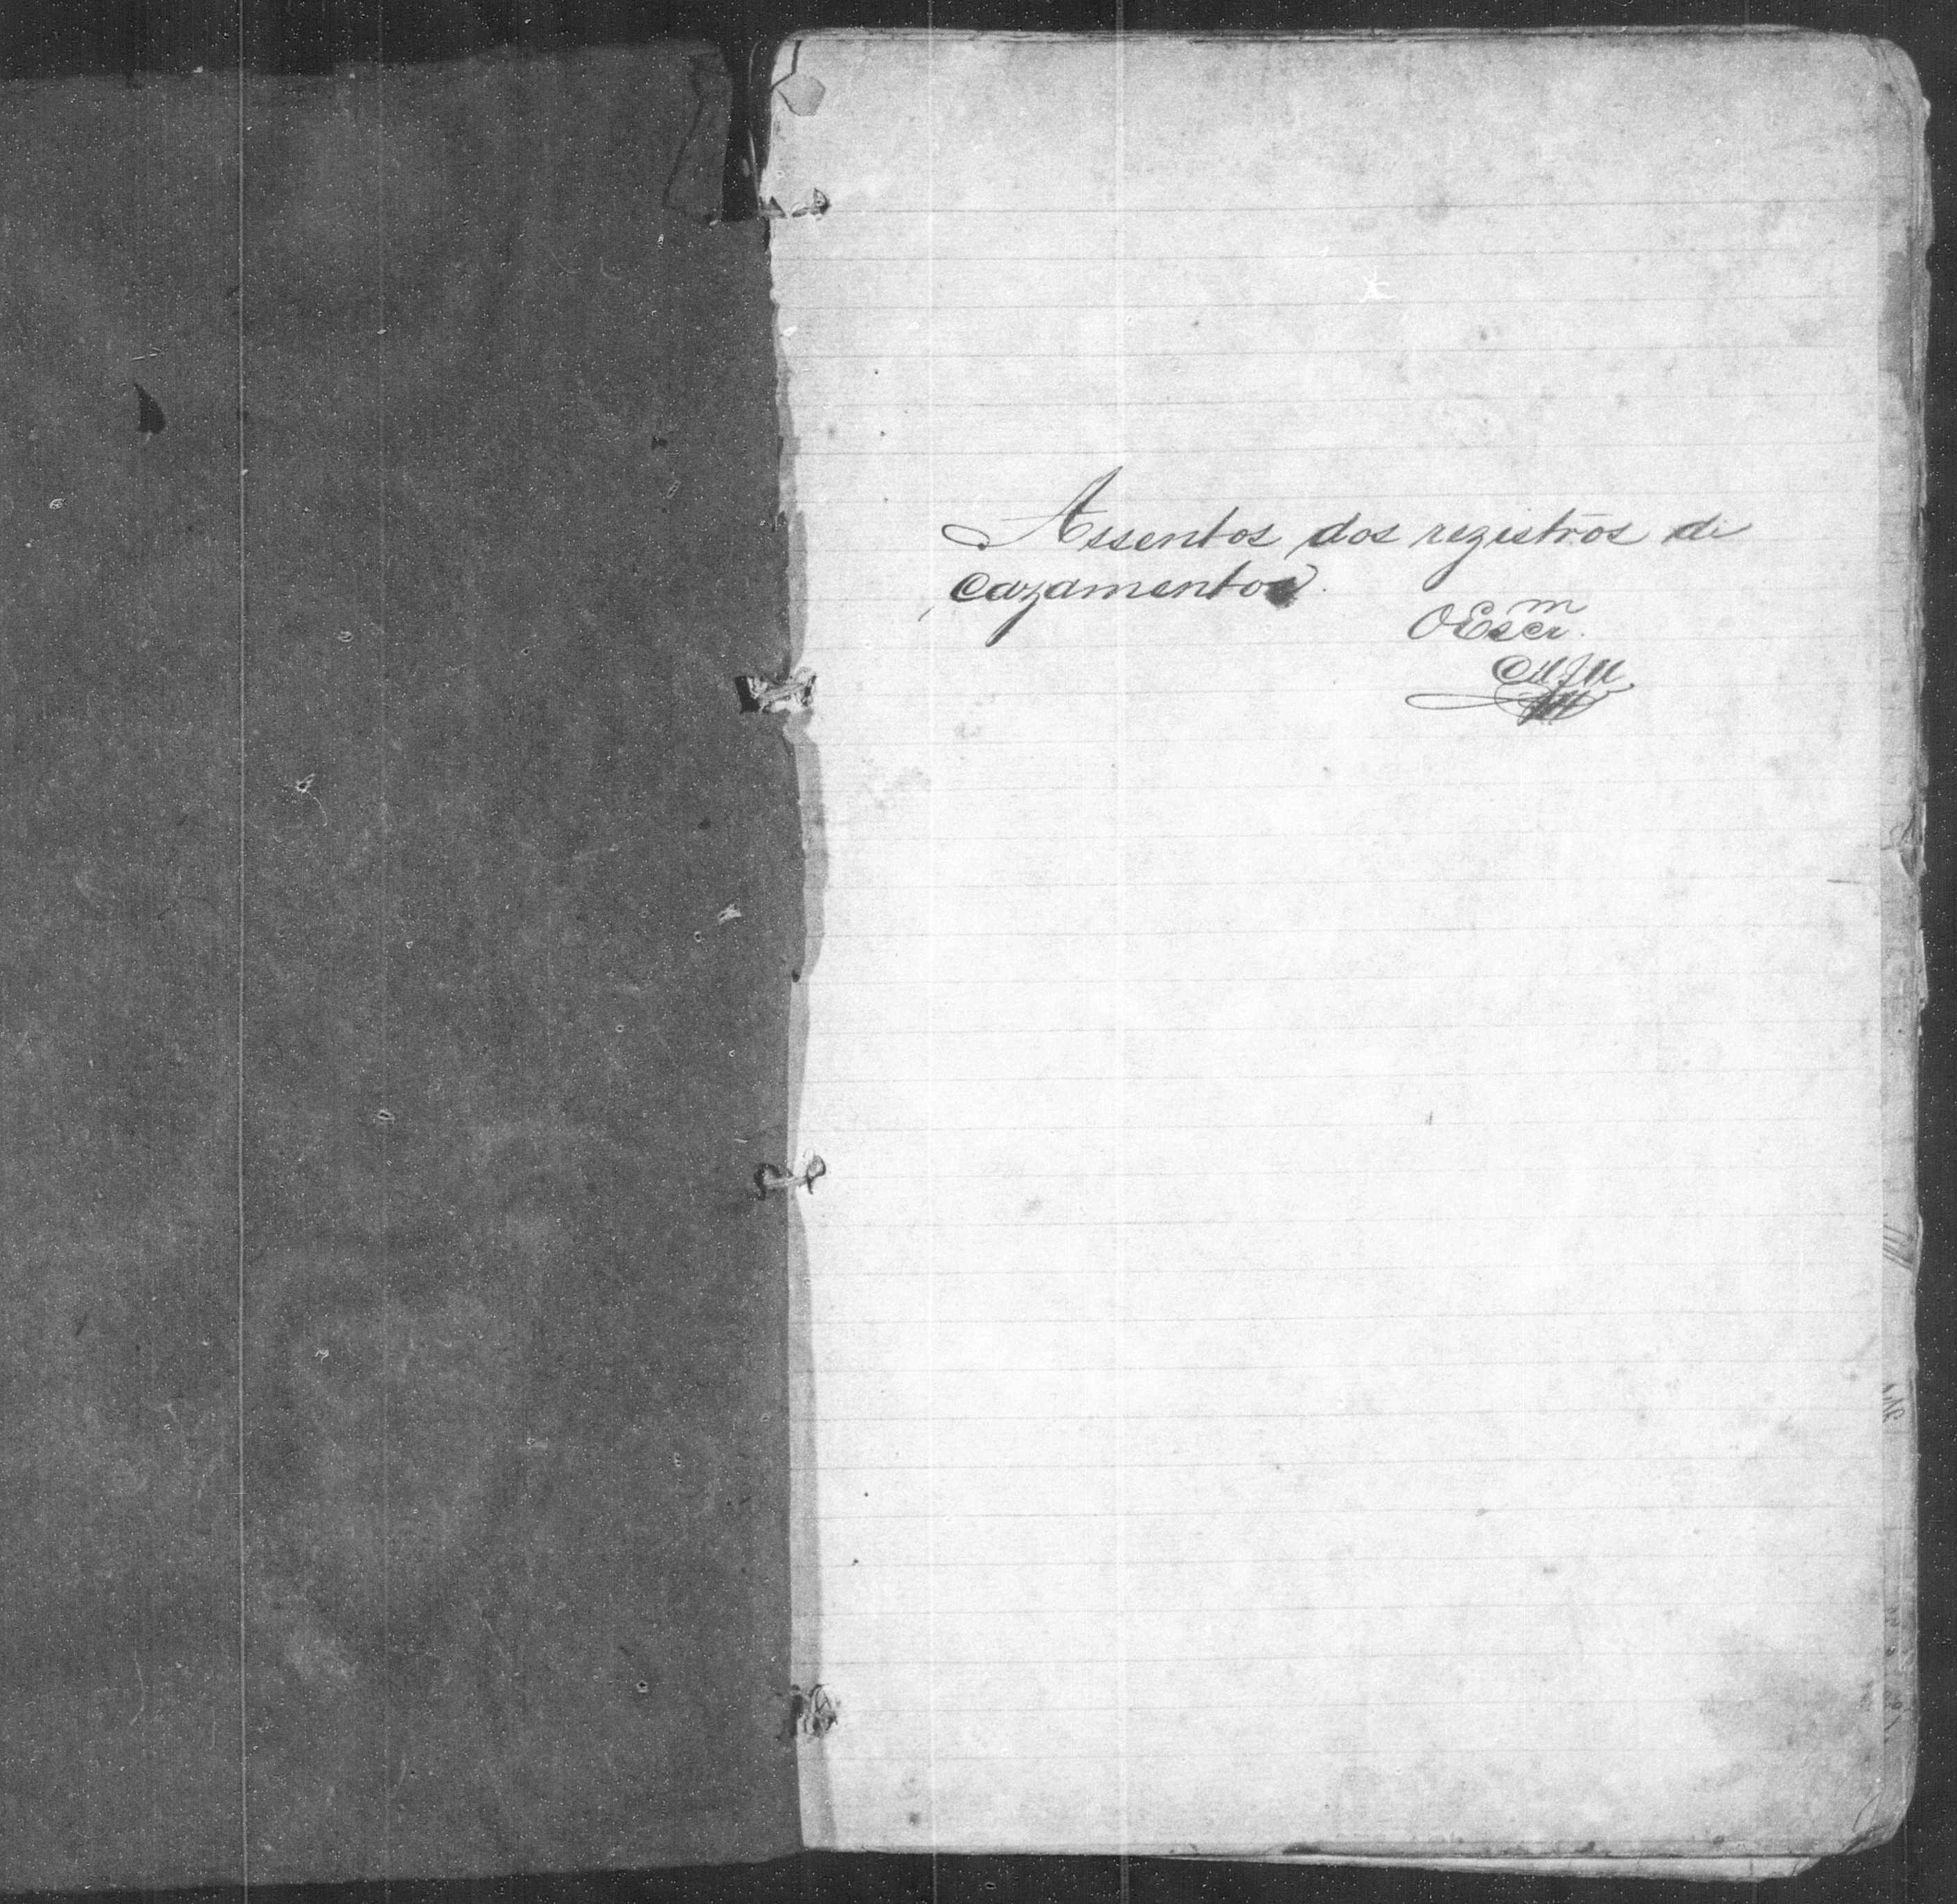 Assentos dos registros de
cazamentos.
O Escr.m